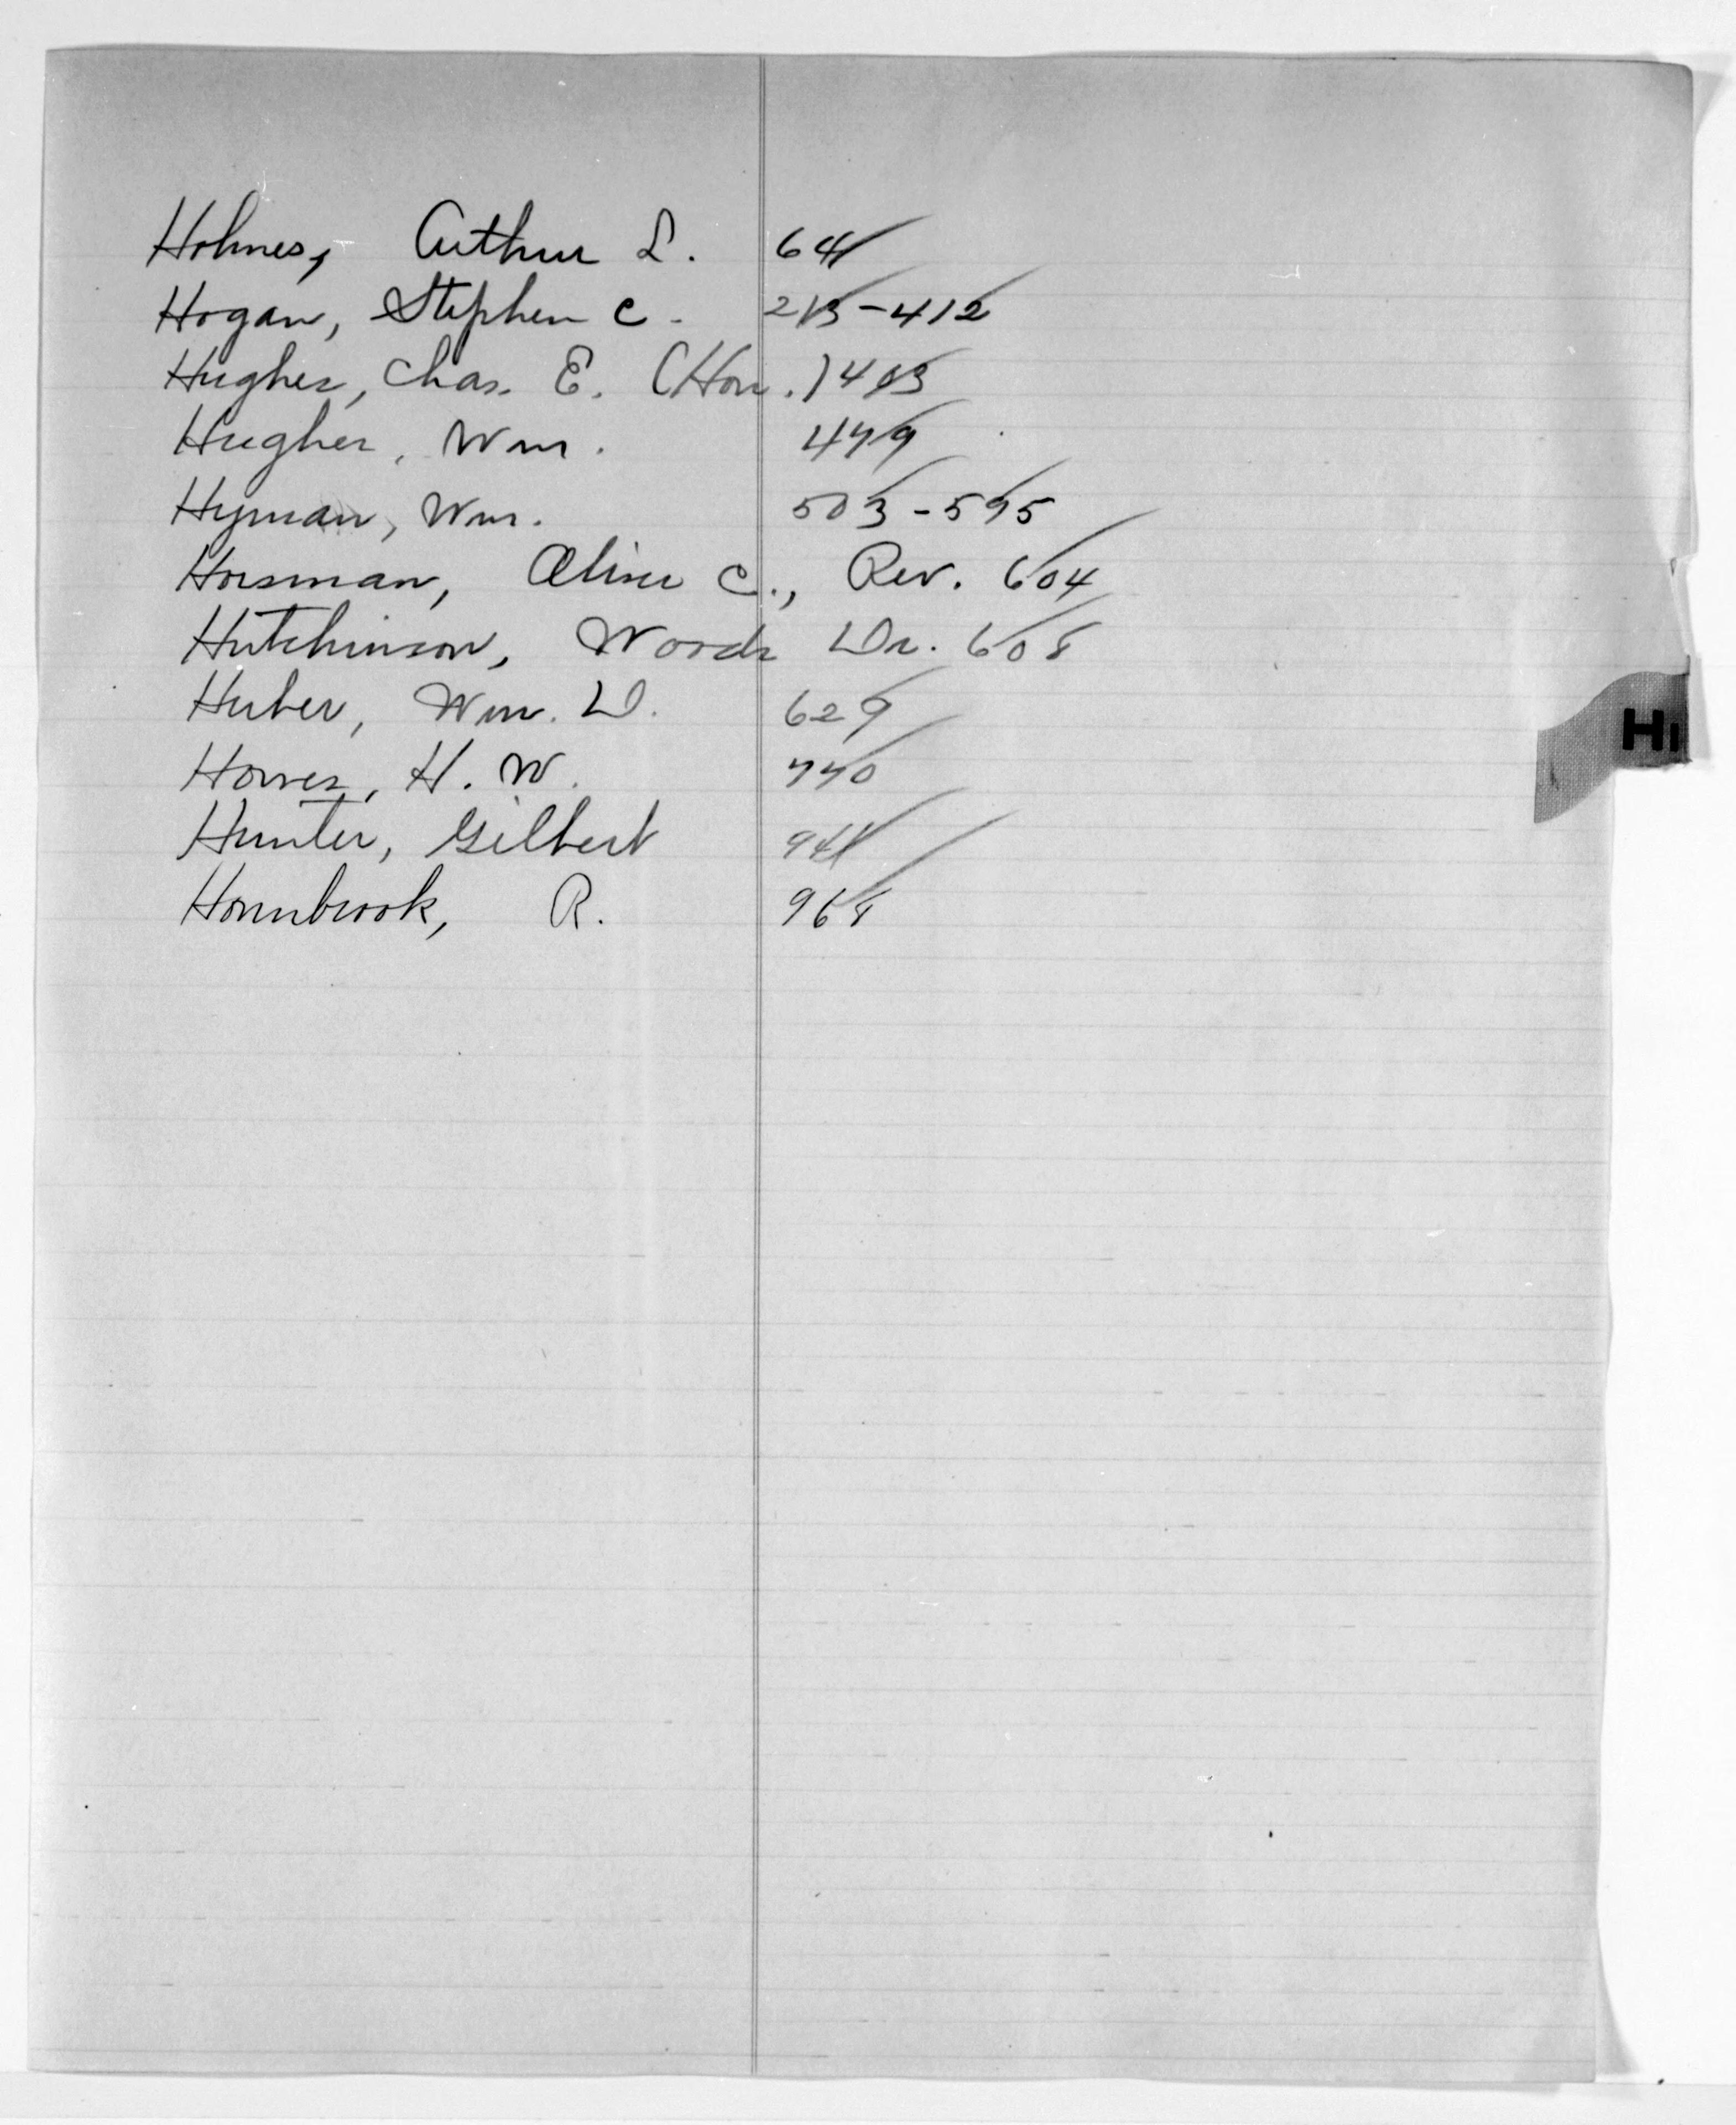 Holmes, Arthur L. 64
Hogan, Stephen C. 213-412
Hughes, Chas. E. (Hon.) 413
Hughes, Wm. 479
Hyman, Wm. 503-595
Horsman, Oliver C., Rev. 604
Hutchinson, Woods Dr. 608
Huber, Wm. D. 629
Howes, H. W. 770
Hunter, Gilbert 941
Hornbrook, R. 968
Hi